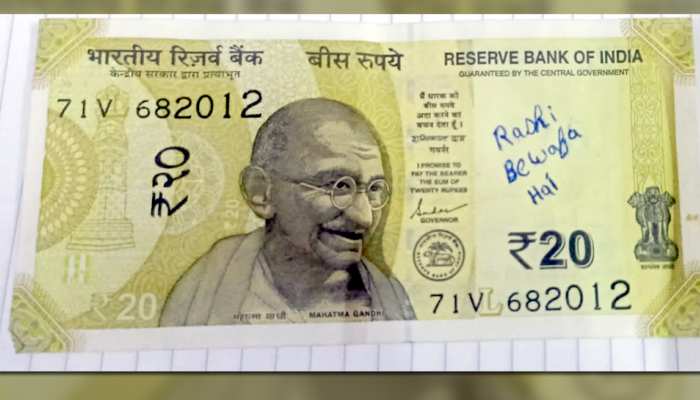 भारतीय रिज़र्व बैंक
केन्द्रीय सरकार द्वारा प्रत्याभूत
बीस रुपये
RESERVE BANK OF INDIA
GUARANTEED BY THE CENTRAL GOVERNMENT
71V 682012
₹२०
मैं धारक को
बीस रुपये
अदा करने का
वचन देता हूँ।
गवर्नर
I PROMISE TO
PAY THE BEARER
THE SUM OF
TWENTY RUPEES
GOVERNOR
Rashi
Bewafa
Hai
₹20
₹20
71V L 682012
महात्मा गांधी
MAHATMA GANDHI